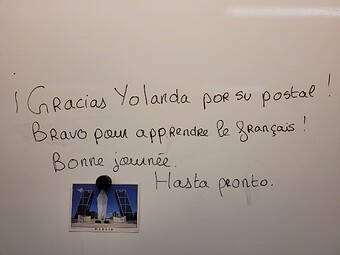 ¡ Gracias Yolanda por su postal !
Bravo pour apprendre le français !
Bonne journée.
Hasta pronto.
MADRID